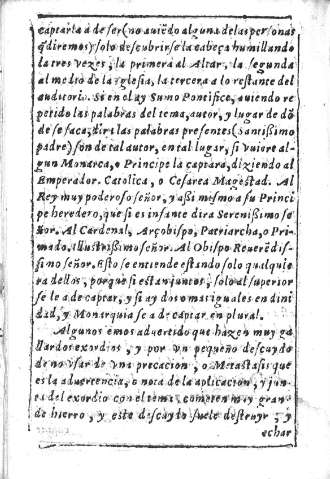 captarla à de ser (no auiẽdo alguna de las personas
q̃ diremos) solo descubrirse la cabeça humillando
la tres vezes, la primera al Altar, la segunda
al medio de la Iglesia, la tercera a lo restante del
auditorio. Si en el ay Sumo Pontifice, auiendo re
petido las palabras del tema, autor, y lugar de dõ
de se saca, dirà las palabras presentes (Santissimo
padre) son de tal autor, en tal lugar, si vuiere al-
gun Monarca, o Principe la captarà, diziendo al
Emperador. Catolica, o Cesarea Magestad. Al
Rey muy poderoso señor, y assi mismo a su Princi
pe heredero, que si es infante dira Serenissimo se
ñor. Al Cardenal, Arçobispo, Patriarcha, o Pri-
mado, Illustrissimo señor. Al Obispo Reuerẽdis-
simo señor. Esto se entiende estando solo qualquie
ra dellos, porque si estan juntos, solo al superior
se le a de captar, y si ay dos o mas iguales en dini
dad, y Monarquia se a de captar en plural.
Algunos emos aduertido que hazen muy ga
llardos exordios, y por vn pequeño descuydo
de no vsar de vna precacion, o Metastasis que
es la aduertencia, o nota de la aplicacion, y jun
ta del exordio con el tema, cometen muy gran-
de hierro, y este descuydo suele destruyr, y
echar